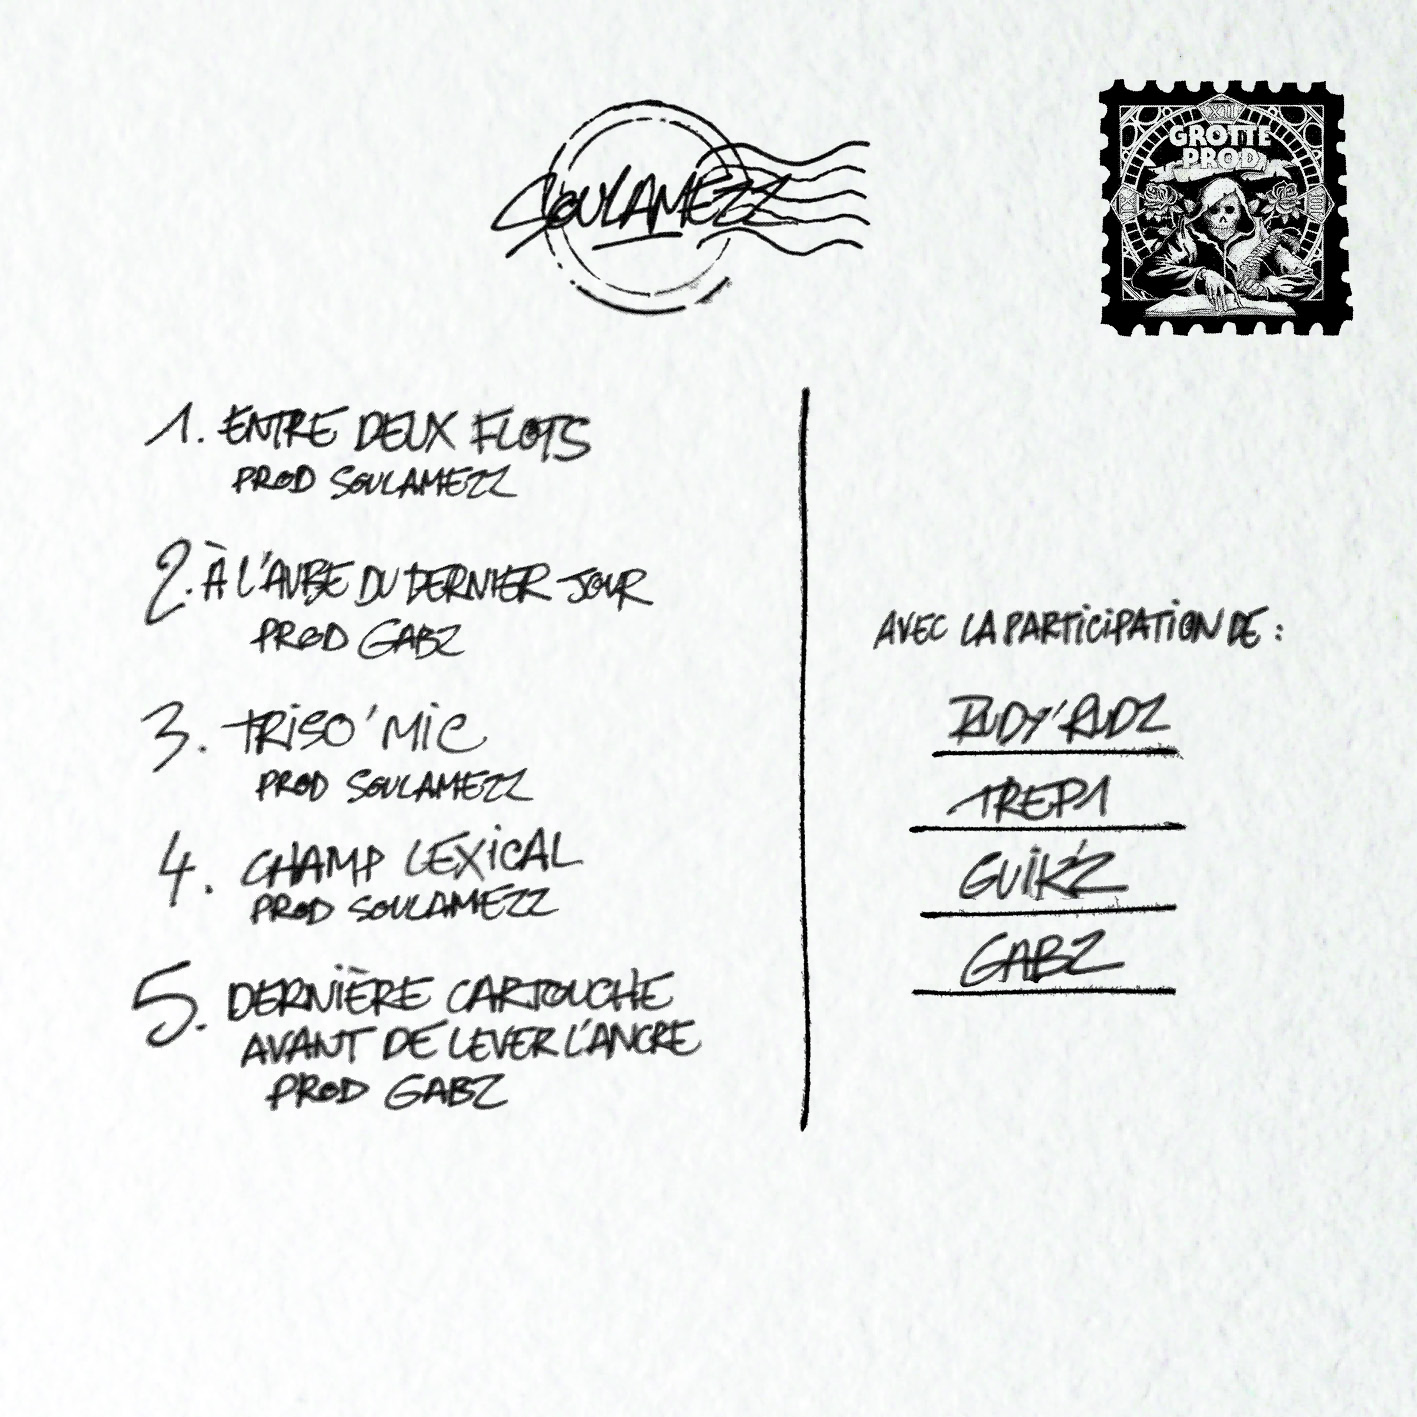 SOULAMEZZ
XII
GROTTE
PROD
1. ENTRE DEUX FLOTS
PROD SOULAMEZZ
2. À L'AUBE DU DERNIER JOUR
PROD GABZ
3. TRISO'MIC
PROD SOULAMEZZ
4. CHAMP LEXICAL
PROD SOULAMEZZ
5. DERNIÈRE CARTOUCHE
AVANT DE LEVER L'ANCRE
PROD GABZ
AVEC LA PARTICIPATION DE :
RUDY'RUDZ
TREP1
GUIK'Z
GABZ